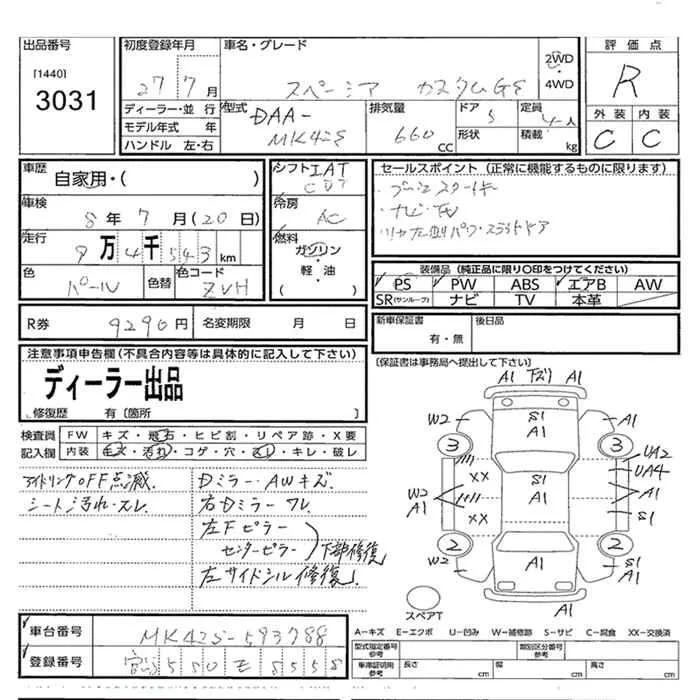 出品番号
[1440]
3031
初度登録年月
27年7月
車名・グレード
スペーシア カスタムGS
2WD
4WD
評価点
R
ディーラー・並行
モデル年式 年
ハンドル 左・右
型式
DAA-
MK42S
排気量
660 CC
ドア
5
形状
定員
4人
積載 kg
外装 内装
C C
車歴
自家用・( )
車検
8年7月(20日)
走行
9万4千543km
色
パール
色替
色コード
ZVH
シフト IAT
CVT
冷房
AC
燃料
ガソリン
・
軽・油
( )
セールスポイント (正常に機能するものに限ります)
・プッシュスタートキー
・ナビ・TV
・リヤ左側パワースライドドア
装備品 (純正品に限り○印をつけてください)
PS PW ABS エアB AW
SR(サンルーフ) ナビ TV 本革
R券 9290円 名変期限 月 日
新車保証書
有・無
後日品
(保証書は事務局へ提出して下さい)
注意事項申告欄 (不具合内容等は具体的に記入して下さい)
ディーラー出品
修復歴 有〔箇所 〕
検査員 FW キズ・飛石・ヒビ割・リペア跡・X要
記入欄 内装 キズ・汚れ・コゲ・穴・スレ・キレ・破レ
アイドリングOFF点滅
シート汚れ・スレ
Dミラー・AWキズ
右Dミラーワレ
左Fピラー
センターピラー 下部修復
左サイドシル修復
A1 下ズリ A1
W2 S1 A1 A1
3 3
XX S1 UA2
UA4
W2
A1 A1 A1
XX S1
2 2
W2 A1 S1
A1
A1
スペアT
車台番号 MK42S-593788
登録番号 宮 580 そ 8558
A－キズ E－エクボ U－凹み W－補修跡 S－サビ C－腐食 XX－交換済
型式指定番号
参考
類別区分番号
参考
車庫証明用
参考
長さ cm
幅 cm
高さ cm